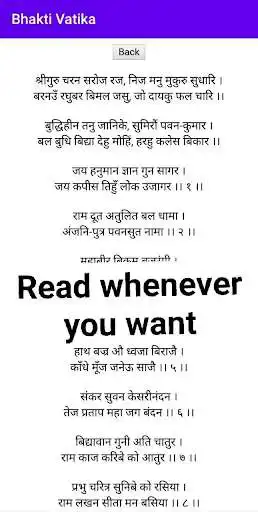 Bhakti Vatika
Back
श्रीगुरु चरन सरोज रज, निज मनु मुकुरु सुधारि ।
बरनउँ रघुबर बिमल जसु, जो दायकु फल चारि ।।
बुद्धिहीन तनु जानिके, सुमिरौं पवन-कुमार ।
बल बुधि बिद्या देहु मोहिं, हरहु कलेस बिकार ।।
जय हनुमान ज्ञान गुन सागर ।
जय कपीस तिहुँ लोक उजागर ।। १ ।।
राम दूत अतुलित बल धामा ।
अंजनि-पुत्र पवनसुत नामा ।। २ ।।
Read whenever
you want
हाथ बज्र औ ध्वजा बिराजै ।
काँधे मूँज जनेऊ साजै ।। ५ ।।
संकर सुवन केसरीनंदन ।
तेज प्रताप महा जग बंदन ।। ६ ।।
बिद्यावान गुनी अति चातुर ।
राम काज करिबे को आतुर ।। ७ ।।
प्रभु चरित्र सुनिबे को रसिया ।
राम लखन सीता मन बसिया ।। ८ ।।